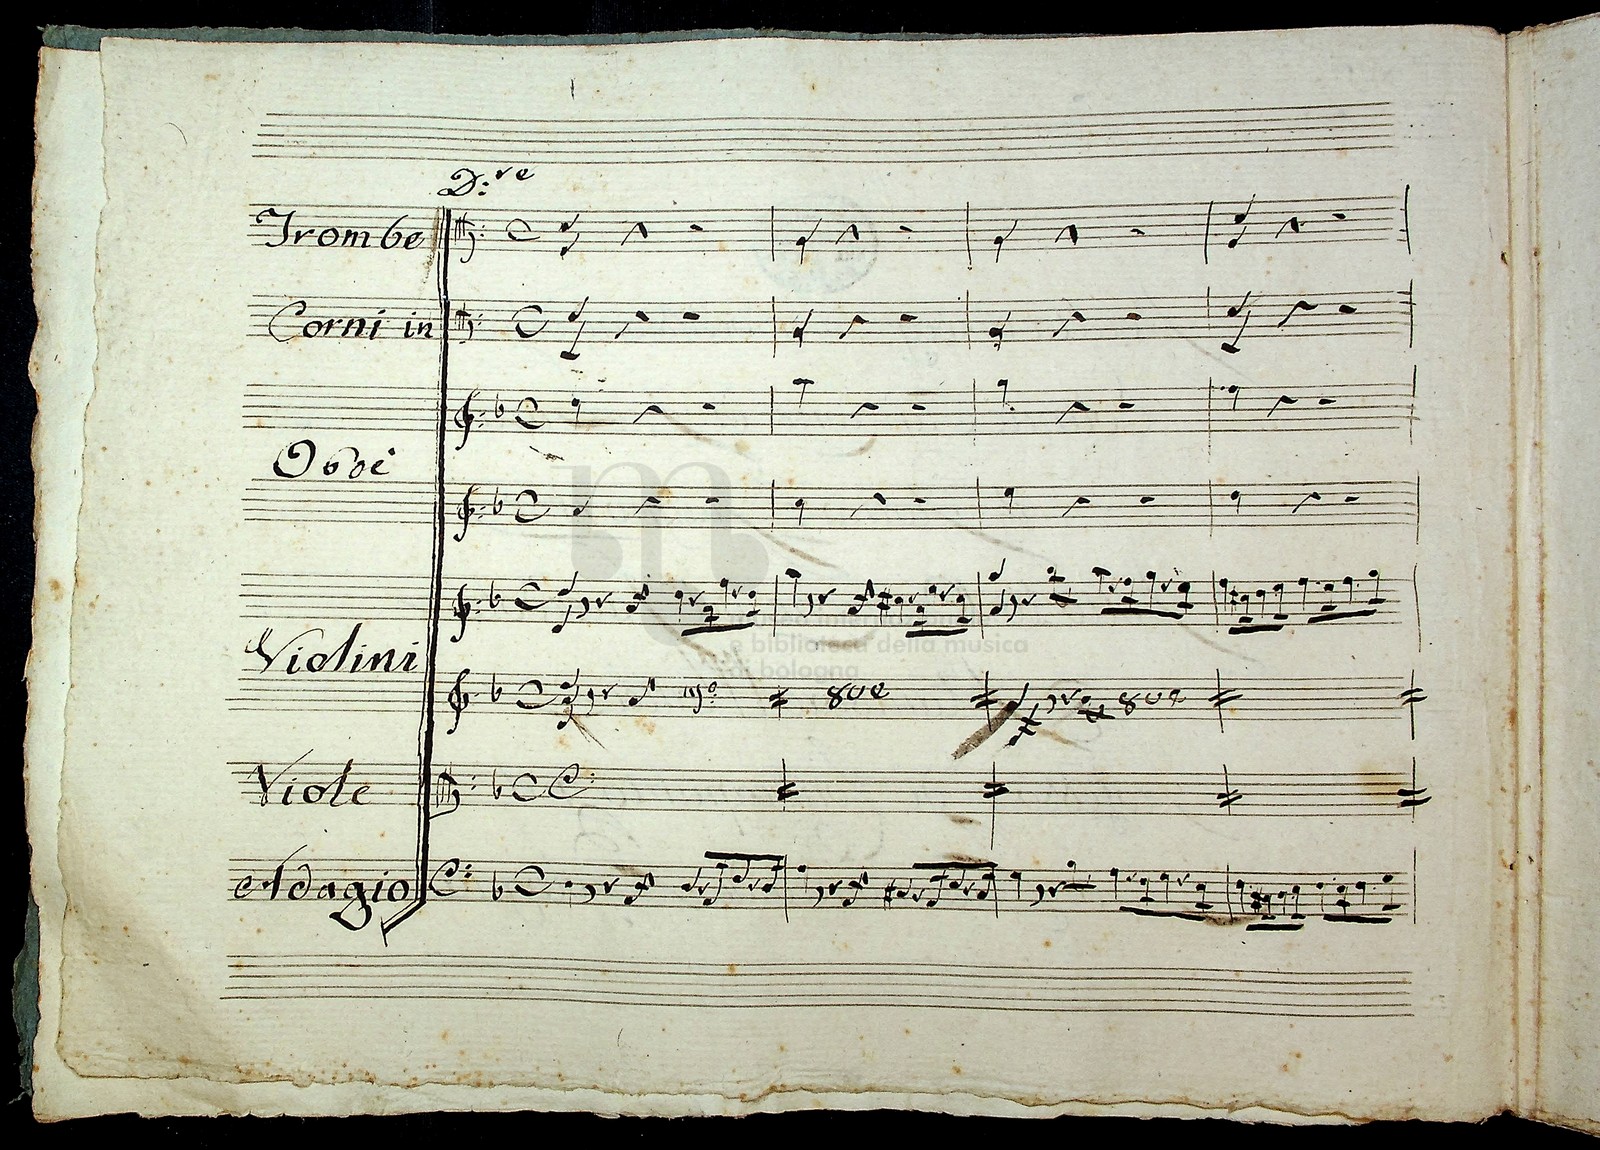 D:re
Trombe
Corni in
Oboè
Violini
8ve 8ve
Viole
Adagio
e biblioteca della musica
di bologna